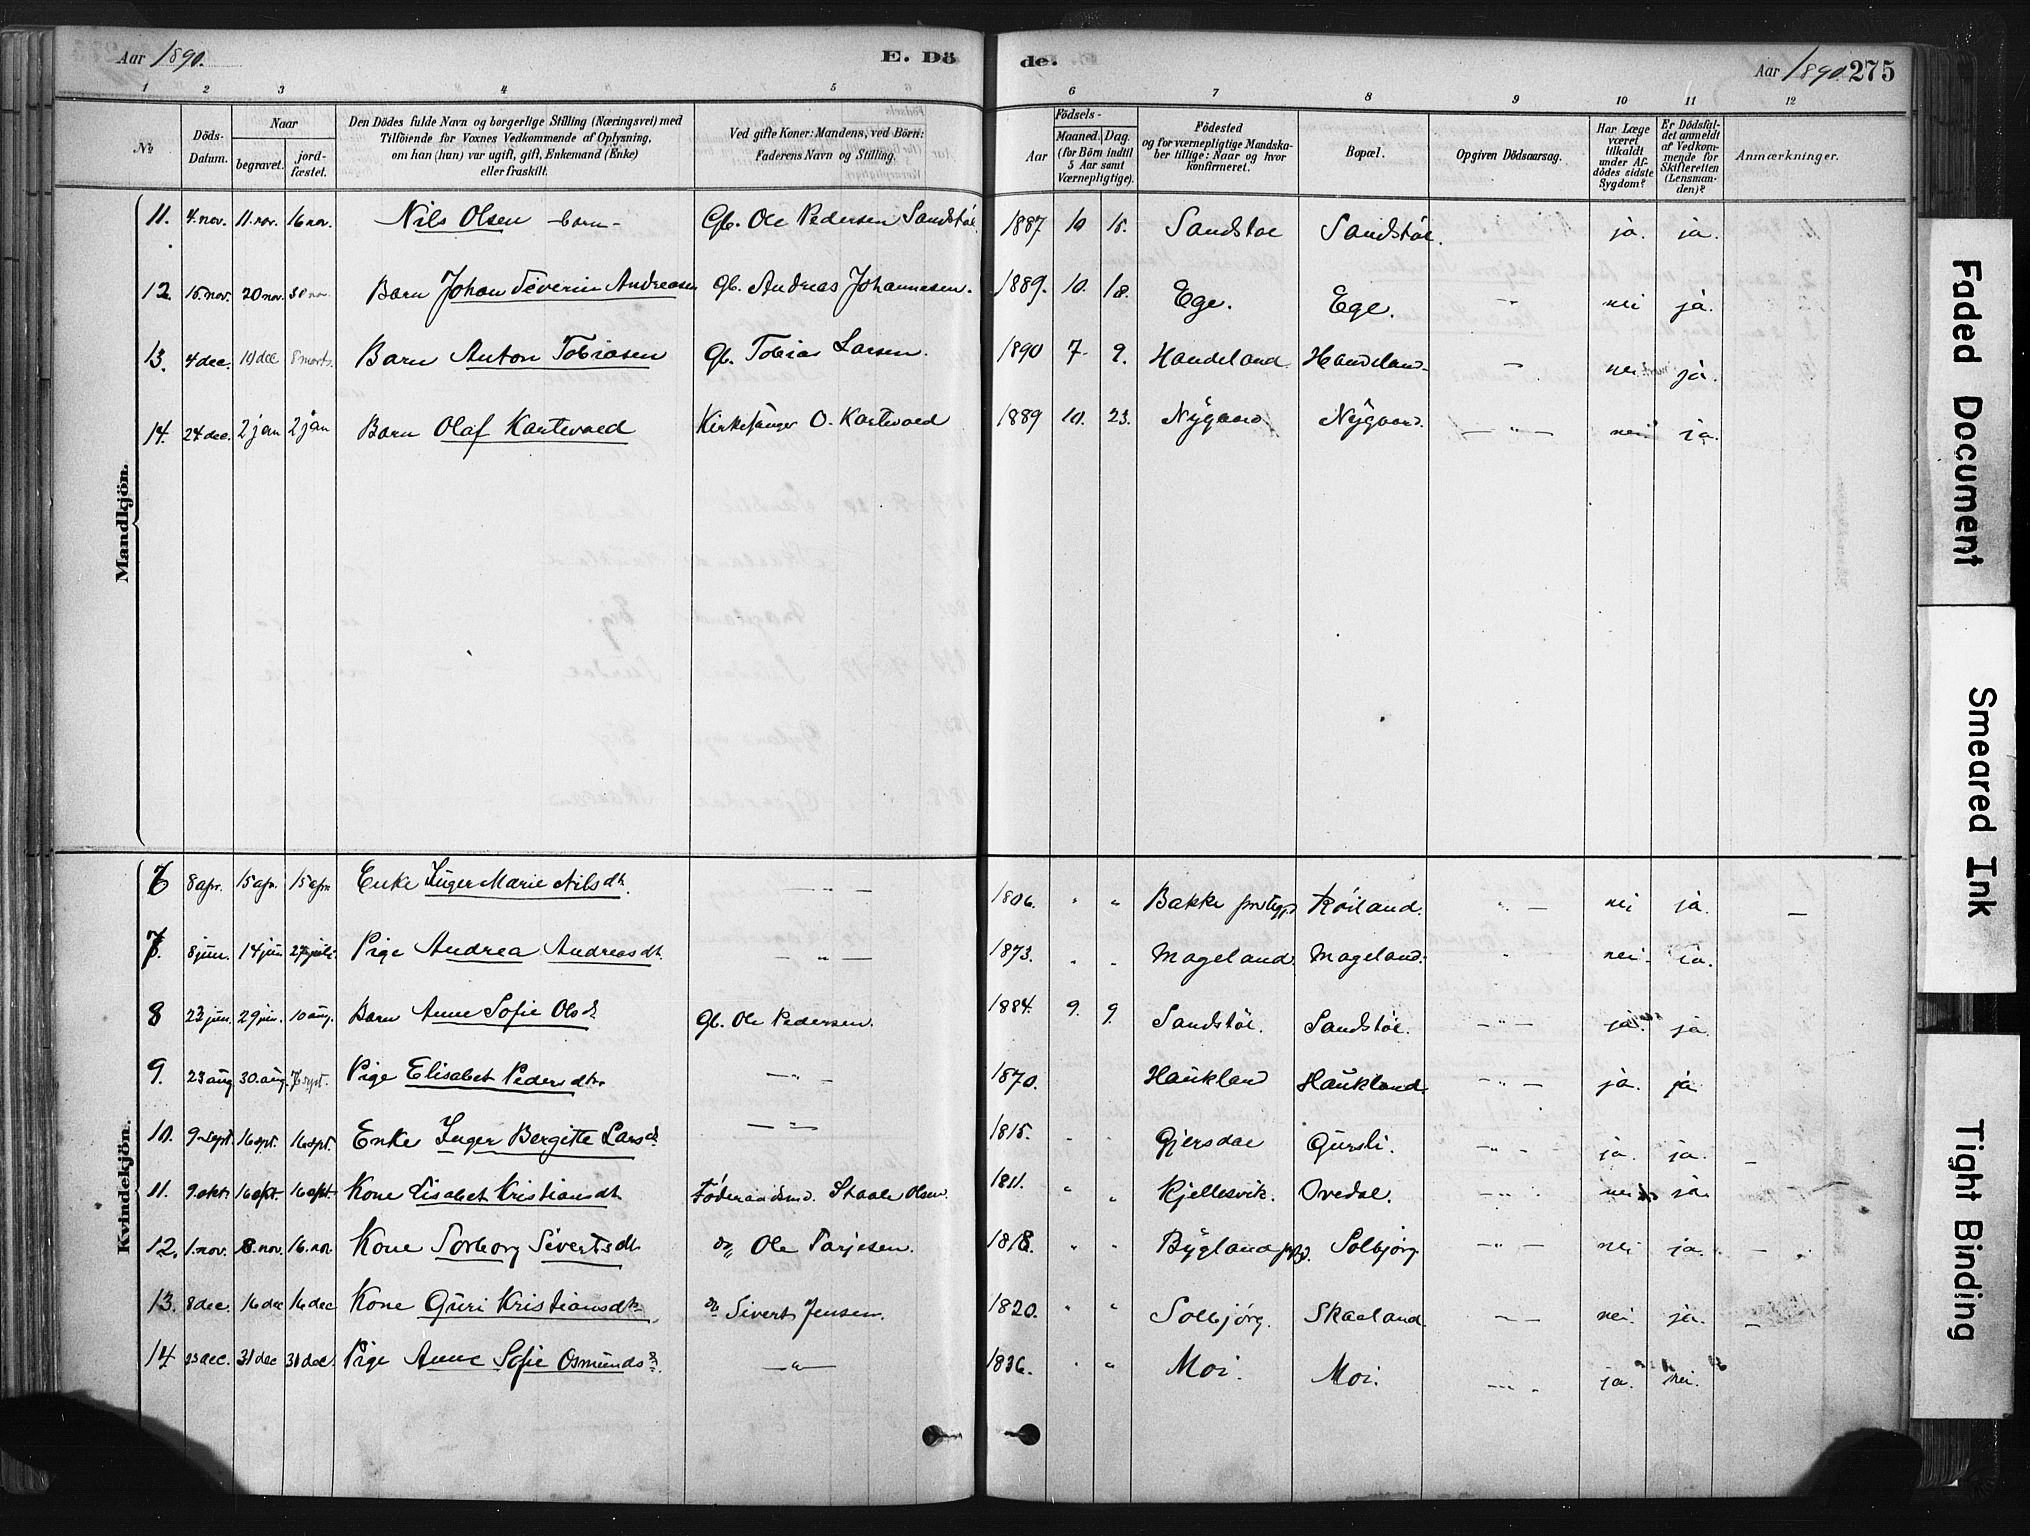 Aar 1890. E. Dö de. Aar 1890 275
1 2 3 4 5 6 7 8 9 10 11 12
No
Döds-Datum.
Naar
begravet.
jord-fæstet.
Den Dödes fulde Navn og borgerlige Stilling (Næringsvei) med
Tilföiende for Voxnes Vedkommende af Oplysning,
om han (hun) var ugift, gift, Enkemand (Enke)
eller fraskilt.
Ved gifte Koner: Mandens, ved Börn:
Faderens Navn og Stilling.
Födsels-
Aar
Maaned. Dag.
(for Börn indtil
5 Aar samt
Værnepligtige).
Födested
og for værnepligtige Mandska-
ber tillige: Naar og hvor
konfirmeret.
Bopæl.
Opgiven Dödsaarsag.
Har Læge
været
tilkaldt
under Af-
dödes sidste
Sygdom?
Er Dödsfal-
det anmeldt
af Vedkom-
mende for
Skifteretten
(Lensman-
den)?
Anmærkninger.
Mandkjön.
11. 4. nov. 11. nov. 16 nov. Nils Olsen barn Gb. Ole Pedersen Sandstöl 1887 10 18. Sandstøl Sandstøl. ja. ja.
12. 15 nov. 20 nov. 30 nov. Barn Johan Severin Andreasen Gb. Andreas Johannesen. 1889. 10. 18. Ege. Ege. " nei ja.
13. 4 dec. 10 dec Barn Anton Tobiasen Gb. Tobias Larsen. 1890 7 9. Handeland Handeland — nei ja.
14. 24 dec. 2 jan 2 jan Barn Olaf Kartevold Kirkesanger O. Kartevold 1889 10. 23. Nygaard Nygaard. — " — nei ja.
Kvindekjön.
6 8 apr. 15 apr. 15 apr. Enke Inger Marie Nilsdt. — " — 1806. " " Bakke prstgj. Røiland. " — nei ja. —
7. 8 jun. 14 jun 27 juli. Pige Andrea Andreasdt. — " — 1873. " " Mageland. Mageland. " nei ja.
8 23 jun. 29 jun. 10 aug. Barn Anne Sofie Olsd. Gb. Ole Pedersen. 1884. 9. 9. Sandstöl. Sandstöl. — " — ja. ja.
9. 23 aug 30. aug. 7 sept. Pige Elisabet Pedersdtr. — " — 1870. Haukland Haukland. — " — ja. ja
10. 9 sept 16 spt. 16 spt. Enke Inger Bergitte Larsd. — " — 1815. " " Gjersdal Gursli. — " — ja. ja. —
11. 9. okt. 16 okt. 16 okt. Kone Lisabet Kristiansdt. Føderaadsmd. Staale Olsen. 1811. " " Kjellesvik. Ovedal. — " — nei ja.
12. 1. nov. 8. nov. 16. nov. Kone Sorborg Sivertsdt. do Ole Tarjesen. 1818. " " Bygland prstgj. Solbjørg — " — nei ja. —
13. 8 dec. 16 dec 16 dec Kone Guri Kristiansdt. do Sivert Jensen. 1820. " " Solbjørg. Skaaland. — — nei. ja. —
14 23 dec. 31 dec 31 dec. Pige Anne Sofie Osmundsd. — " — 1836. " " Moi. Moi. — ja. nei.
Faded Document
Smeared Ink
Tight Binding